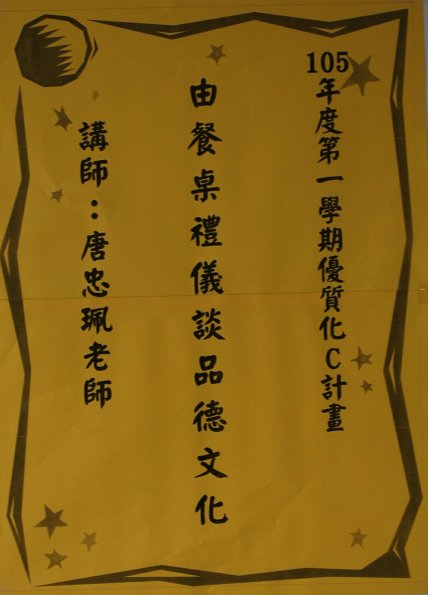 105年度第一學期優質化C計畫
由餐桌禮儀談品德文化
講師：唐忠珮老師